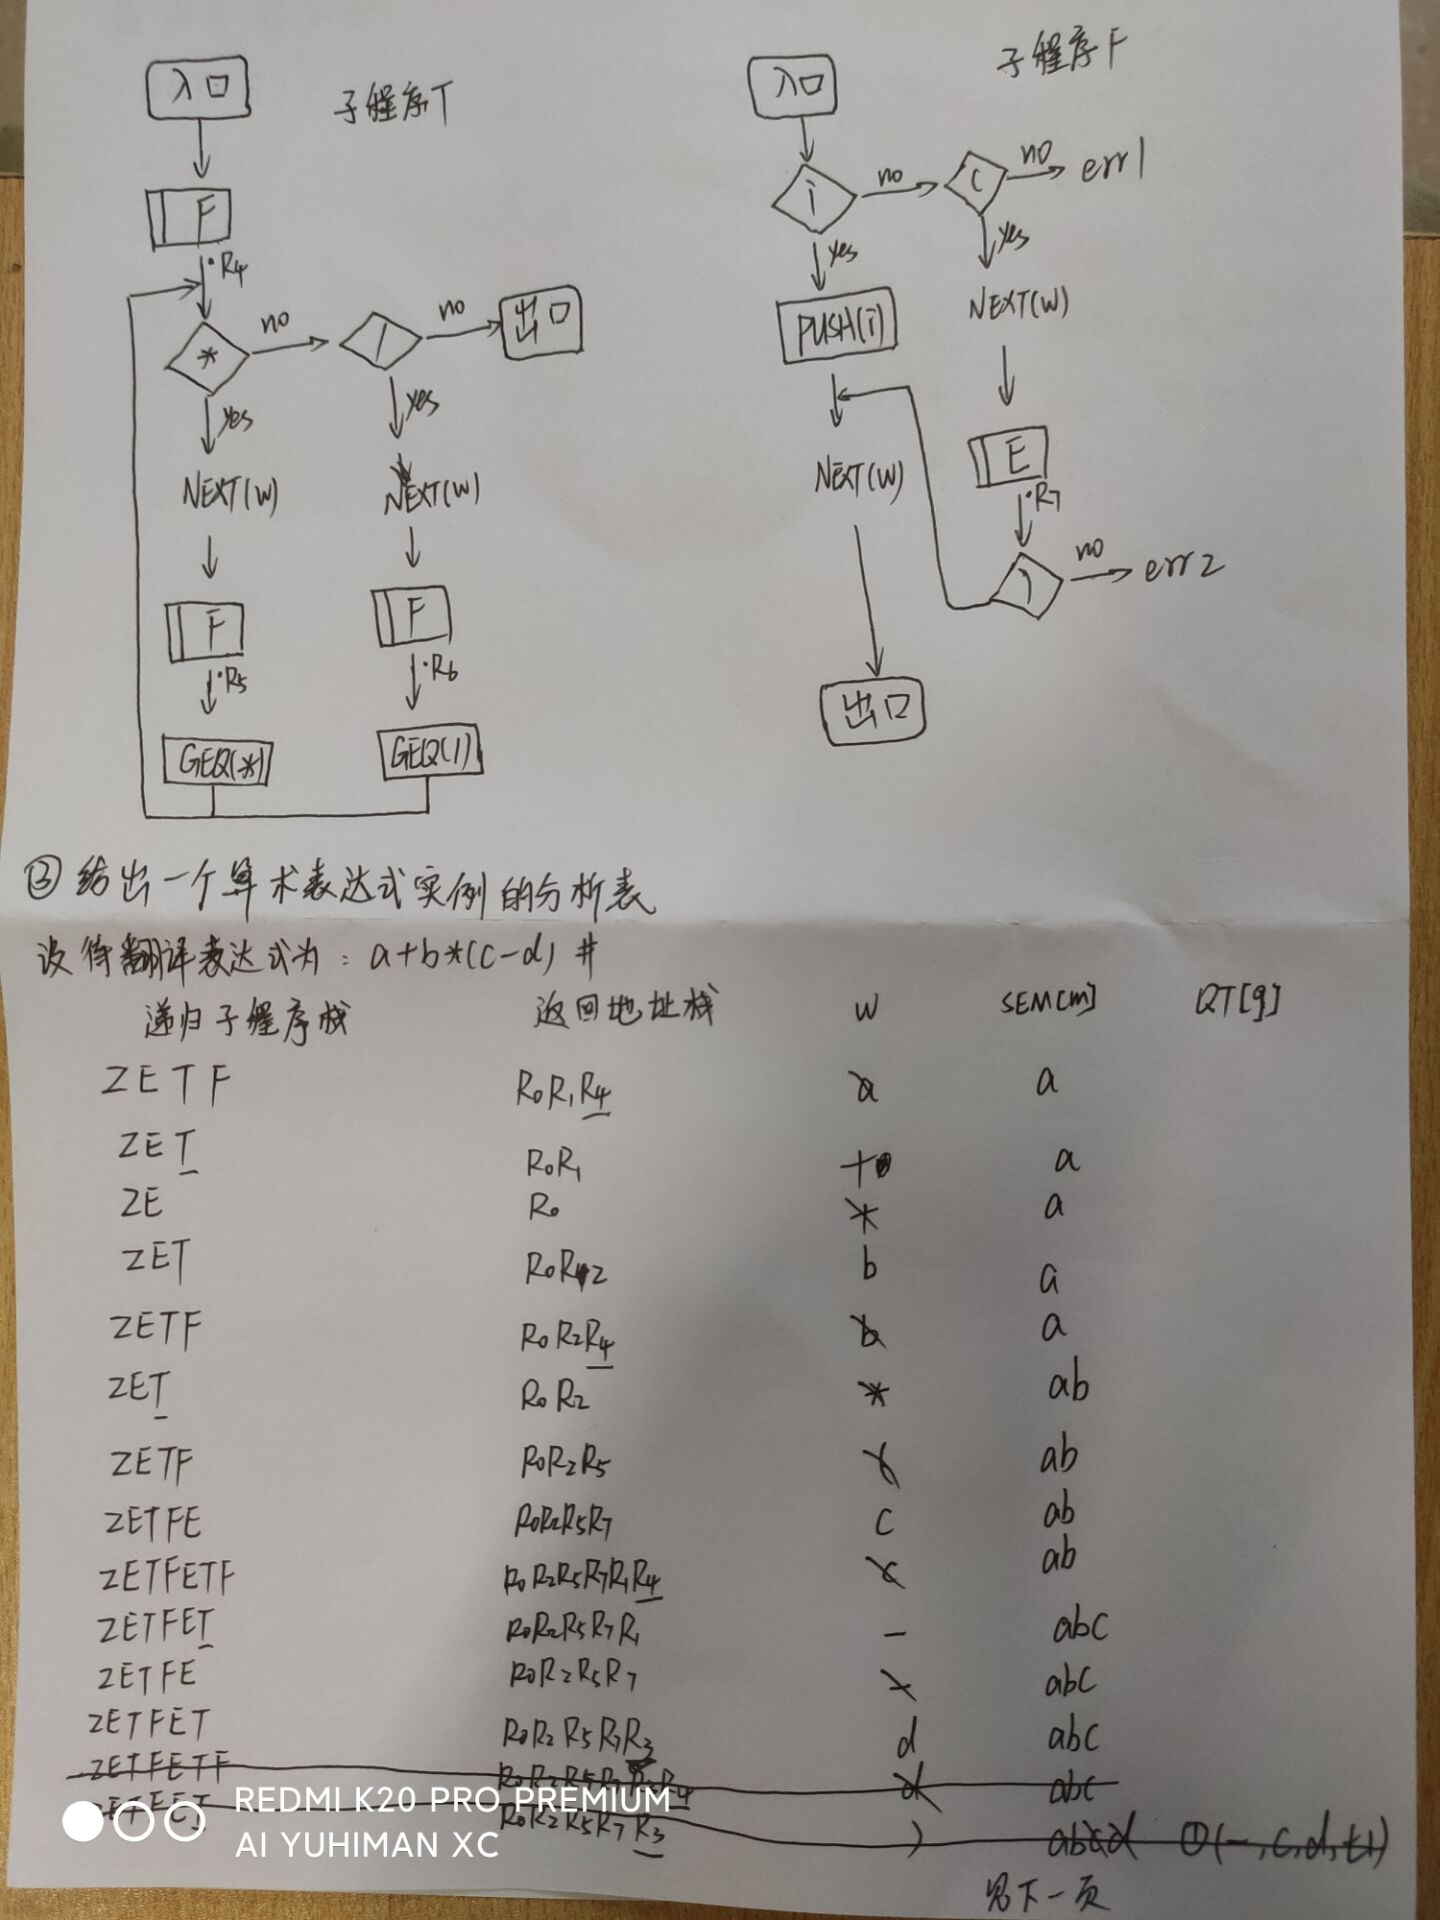 入口
子程序T
F
·R4
*
no
/
no
出口
yes
yes
NEXT(W)
NEXT(W)
F
F
·R5
·R6
GEQ(*)
GEQ(/)
子程序F
入口
i
no
(
no
err1
yes
yes
PUSH(i)
NEXT(W)
NEXT(W)
E
·R7
)
no
err2
出口
③给出一个算术表达式实例的分析表
设待翻译表达式为：a+b*(c-d)#
递归子程序栈 返回地址栈 W SEM[m] QT[q]
ZETF R0R1R4 a a
ZET R0R1 + a
ZE R0 + a
ZET R0R2 b a
ZETF R0R2R4 b a
ZET R0R2 * ab
ZETF R0R2R5 ( ab
ZETFE R0R2R5R7 c ab
ZETFETF R0R2R5R7R1R4 c ab
ZETFET R0R2R5R7R1 - abc
ZETFE R0R2R5R7 - abc
ZETFET R0R2R5R7R3 d abc
ZETFETF R0R2R5R7R3R4 d abc
ZETFET R0R2R5R7R3 ) abcd ①(-,c,d,t1)
见下一页
REDMI K20 PRO PREMIUM
AI YUHIMAN XC